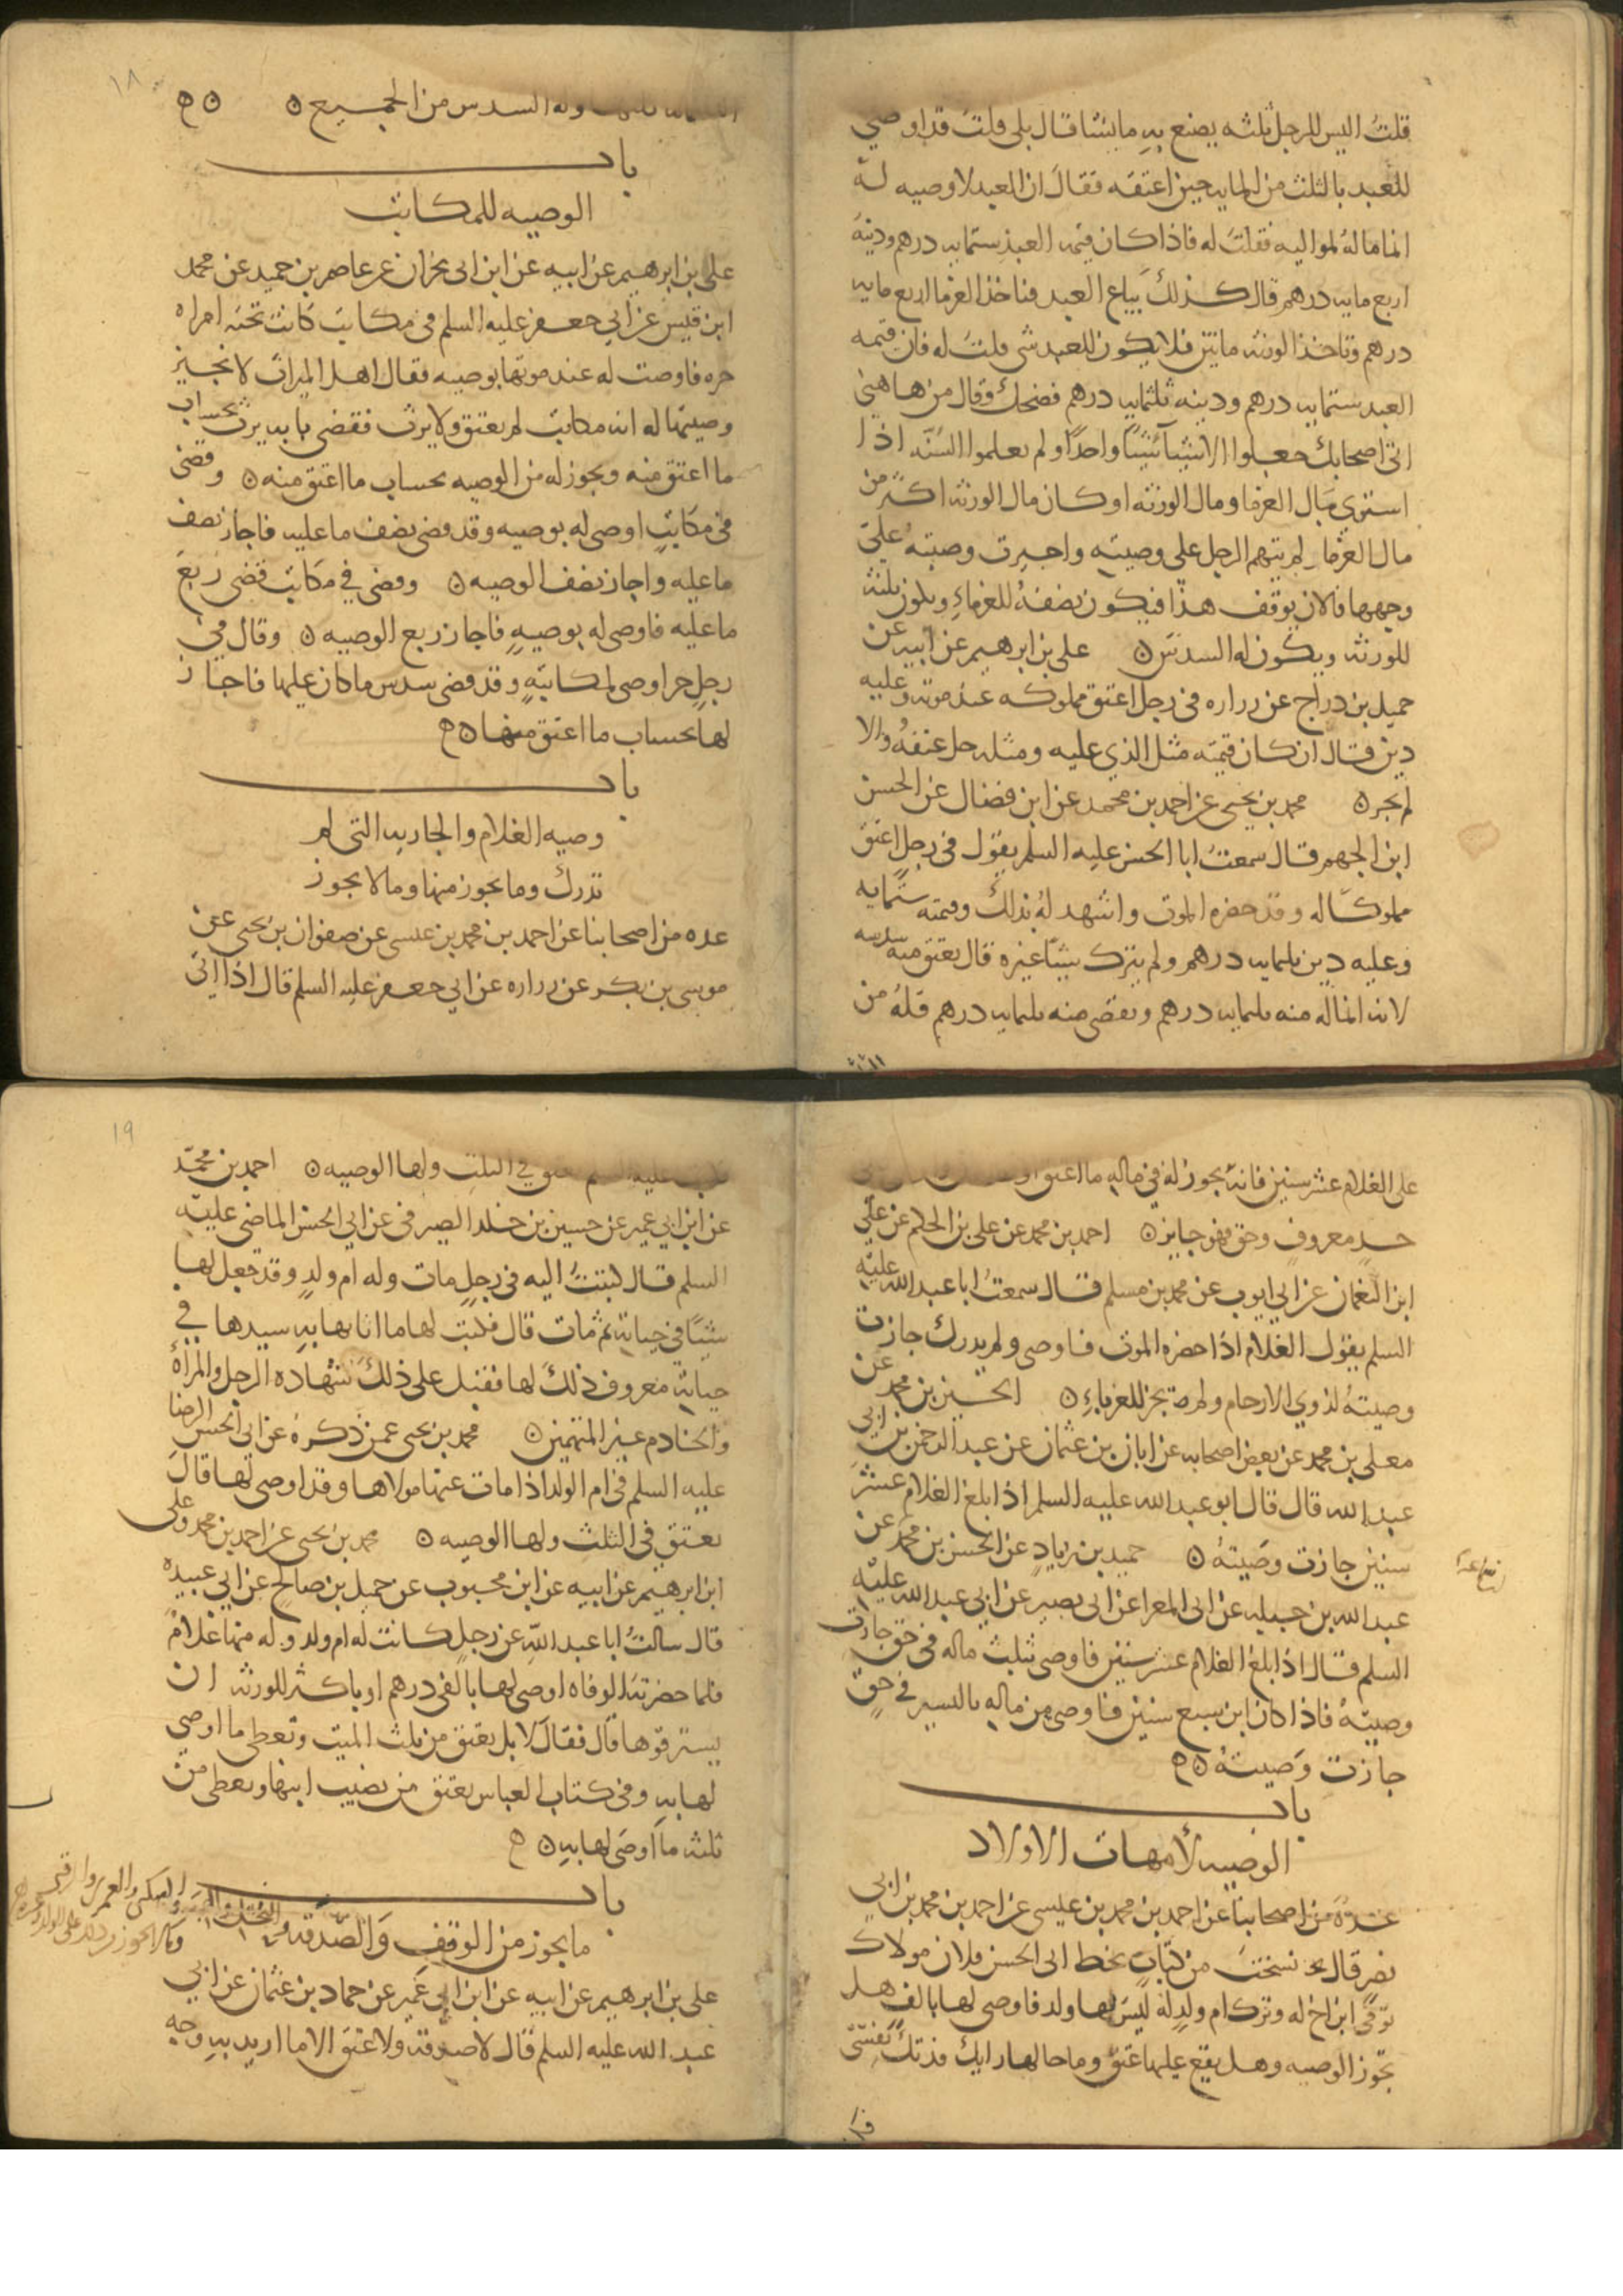 قلت اليس للرجل ثلثه يصنع به ما يشا قال بلى قلت قد اوصي
للعبد بالثلث من المايه حين اعتقه فقال ان العبد لا وصيه له
انما ماله لمواليه فقلت له فاذا كان قيمه العبد ستمايه درهم ودينه
اربع مايه درهم قال كذلك يباع العبد فياخذ الغرما اربع مايه
درهم وتاخذ الورثه مائتين فلا يكون للعبد شي قلت له فان قيمه
العبد ستمايه درهم ودينه ثلثمايه درهم فضحك وقال من هاهنى
اتى اصحابك جعلوا الاشيآ شيئًا واحدًا ولم يعلموا السنّه اذا
استوى مال الغرما ومال الورثه او كان مال الورثه اكثر من
مال الغرما لم يتهم الرجل على وصيته واجيزت وصيته على
وجهها فالان يوقف هذا فيكون نصفه للغرماء ويكون ثلثه
للورثه ويكون له السدس ن علي بن ابرهيم عن ابيه عن
جميل بن دراج عن زراره في رجل اعتق مملوكه عند موته وعليه
دين فقال ان كان قيمته مثل الذي عليه ومثله جاز عتقه والا
لم يجز ن محمد بن يحيى عن احمد بن محمد عن ابن فضال عن الحسن
ابن الجهم قال سمعت ابا الحسن عليه السلم يقول في رجل اعتق
مملوكًا له وقد حضره الموت واشهد له بذلك وقيمته ستمايه
وعليه دين ثلثمايه درهم ولم يترك شيئًا غيره قال يعتق منه سدسه
لانه انما له منه ثلثمايه درهم ويقضى منه ثلثمايه درهم فله من
١٨
الثلثمايه ثلثها وله السدس من الجميع ن
باب
الوصيه للمكاتب
علي بن ابرهيم عن ابيه عن ابن ابى نجران عن عاصم بن حميد عن محمد
ابن قيس عن ابي جعفر عليه السلم في مكاتب كانت تحته امراه
حره فاوصت له عند موتها بوصيه فقال اهل الميراث لا نجيز
وصيتها له انه مكاتب لم يعتق ولا يرث فقضى بانه يرث بحساب
ما اعتق منه ويجوز له من الوصيه بحساب ما اعتق منه ن وقضى
في مكاتب اوصي له بوصيه وقد قضى نصف ما عليه فاجاز نصف
ما عليه واجاز نصف الوصيه ن وقضى في مكاتب قضى ربع
ما عليه فاوصى له بوصيه فاجاز ربع الوصيه ن وقال في
رجل حر اوصى لمكاتبه وقد قضى سدس ما كان عليها فاجاز
لها بحساب ما اعتق منها ن
باب
وصيه الغلام والجاريه التي لم
تدرك وما يجوز منها وما لا يجوز
عده من اصحابنا عن احمد بن محمد بن عيسى عن صفوان بن يحيى عن
موسى بن بكر عن زراره عن ابي جعفر عليه السلم قال اذا اتى
على الغلام عشر سنين فانه يجوز له في ماله ما اعتق او
حد معروف وحق فهو جايز ن احمد بن محمد عن علي بن الحكم عن علي
ابن النعمان عن ابي ايوب عن محمد بن مسلم قال سمعت ابا عبد الله عليه
السلم يقول الغلام اذا حضره الموت فاوصى ولم يدرك جازت
وصيته لذوي الارحام ولم تجز للغرباء ن الحسين بن محمد عن
معلى بن محمد عن بعض اصحابه عن ابان بن عثمان عن عبد الرحمن بن ابي
عبد الله قال قال ابو عبد الله عليه السلم اذا بلغ الغلام عشر
سنين جازت وصيته ن حميد بن زياد عن الحسن بن محمد عن
عبد الله بن جبله عن ابي المعرا عن ابى بصير عن ابي عبد الله عليه
السلم قال اذا بلغ الغلام عشر سنين فاوصى بثلث ماله في حق جازت
وصيته فاذا كان ابن سبع سنين فاوصى من ماله باليسير في حق
جازت وصيته ن
باب
الوصيه لأمهات الاولاد
عدة من اصحابنا عن احمد بن محمد بن عيسى عن احمد بن محمد بن ابي
نصر قال نسخت من كتاب بخط ابي الحسن فلان مولاك
توفي ابن اخ له وترك ام ولد له ليس لها ولد فاوصى لها بالف هل
تجوز الوصيه وهل يقع عليها عتق وما حالها رايك فدتك نفسي
١٩
فكتب عليه السلم تعتق في الثلث ولها الوصيه ن احمد بن محمد
عن ابن ابي عمير عن حسين بن خلد الصيرفي عن ابي الحسن الماضي عليه
السلم قال كتبت اليه في رجل مات وله ام ولد وقد جعل لها
شيئًا في حياته ثم مات قال فكتب لها ما اثابها به سيدها في
حياته معروف ذلك لها تقبل على ذلك شهاده الرجل والمراة
والخادم غير المتهمين ن محمد بن يحيى عمن ذكره عن ابي الحسن الرضا
عليه السلم في ام الولد اذا مات عنها مولاها وقد اوصى لها قال
تعتق في الثلث ولها الوصيه ن محمد بن يحيى عن احمد بن محمد وعلي
ابن ابرهيم عن ابيه عن ابن محبوب عن جميل بن صالح عن ابي عبيده
قال سالت ابا عبد الله عن رجل كانت له ام ولد وله منها غلام
فلما حضرته الوفاه اوصى لها بالفي درهم او باكثر للورثه ان
يسترقوها قال فقال لا بل تعتق من ثلث الميت وتعطى ما اوصى
لها به وفي كتاب العباس تعتق من نصيب ابنها وتعطى من
ثلثه ما اوصى لها به ن
باب
ما يجوز من الوقف والصدقة والنحل والهبه والسكنى والعمرى والرقبى
وما لا يجوز من ذلك على الولد وغيره
علي بن ابرهيم عن ابيه عن ابن ابي عمير عن حماد بن عثمان عن ابي
عبد الله عليه السلم قال لا صدقه ولا عتق الا ما اريد به وجه